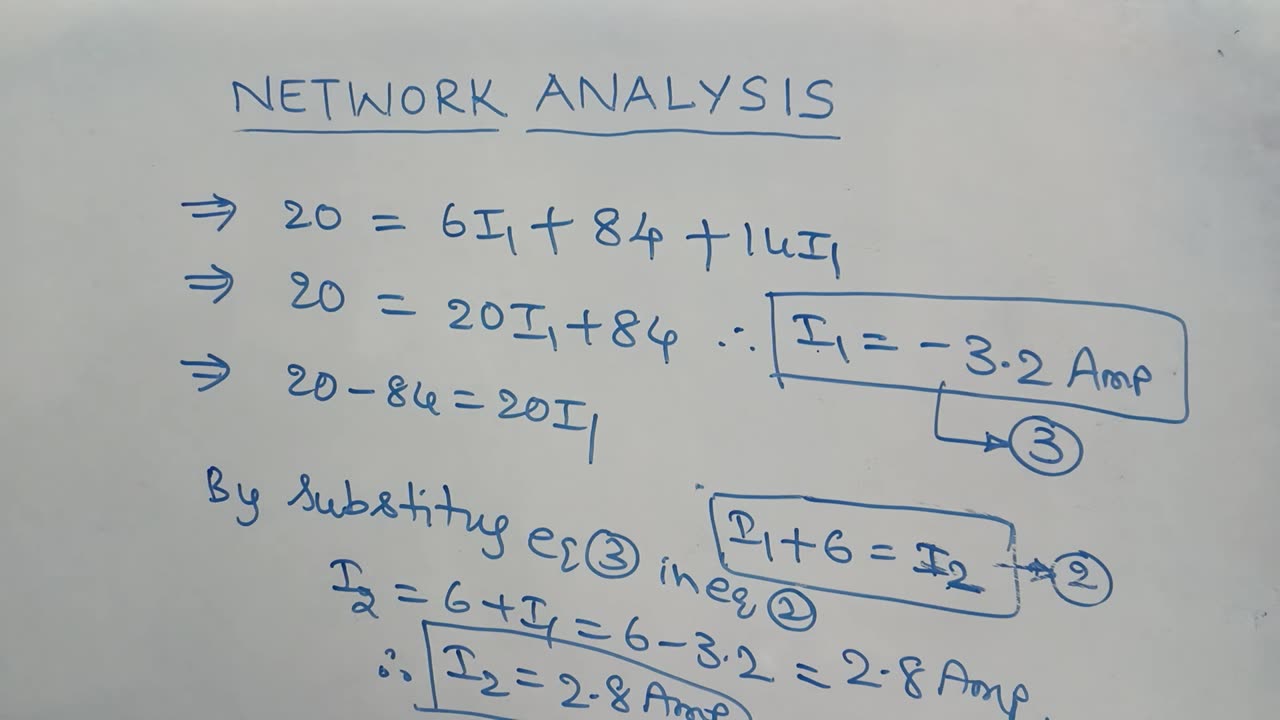 NETWORK ANALYSIS
⇒ 20 = 6I₁ + 84 + 14I₁
⇒ 20 = 20I₁ + 84 ∴ I₁ = - 3.2 Amp
③
⇒ 20 - 84 = 20I₁
By substitug eq ③ in eq ②
I₁ + 6 = I₂ → ②
I₂ = 6 + I₁ = 6 - 3.2 = 2.8 Amp.
∴ I₂ = 2.8 Amp